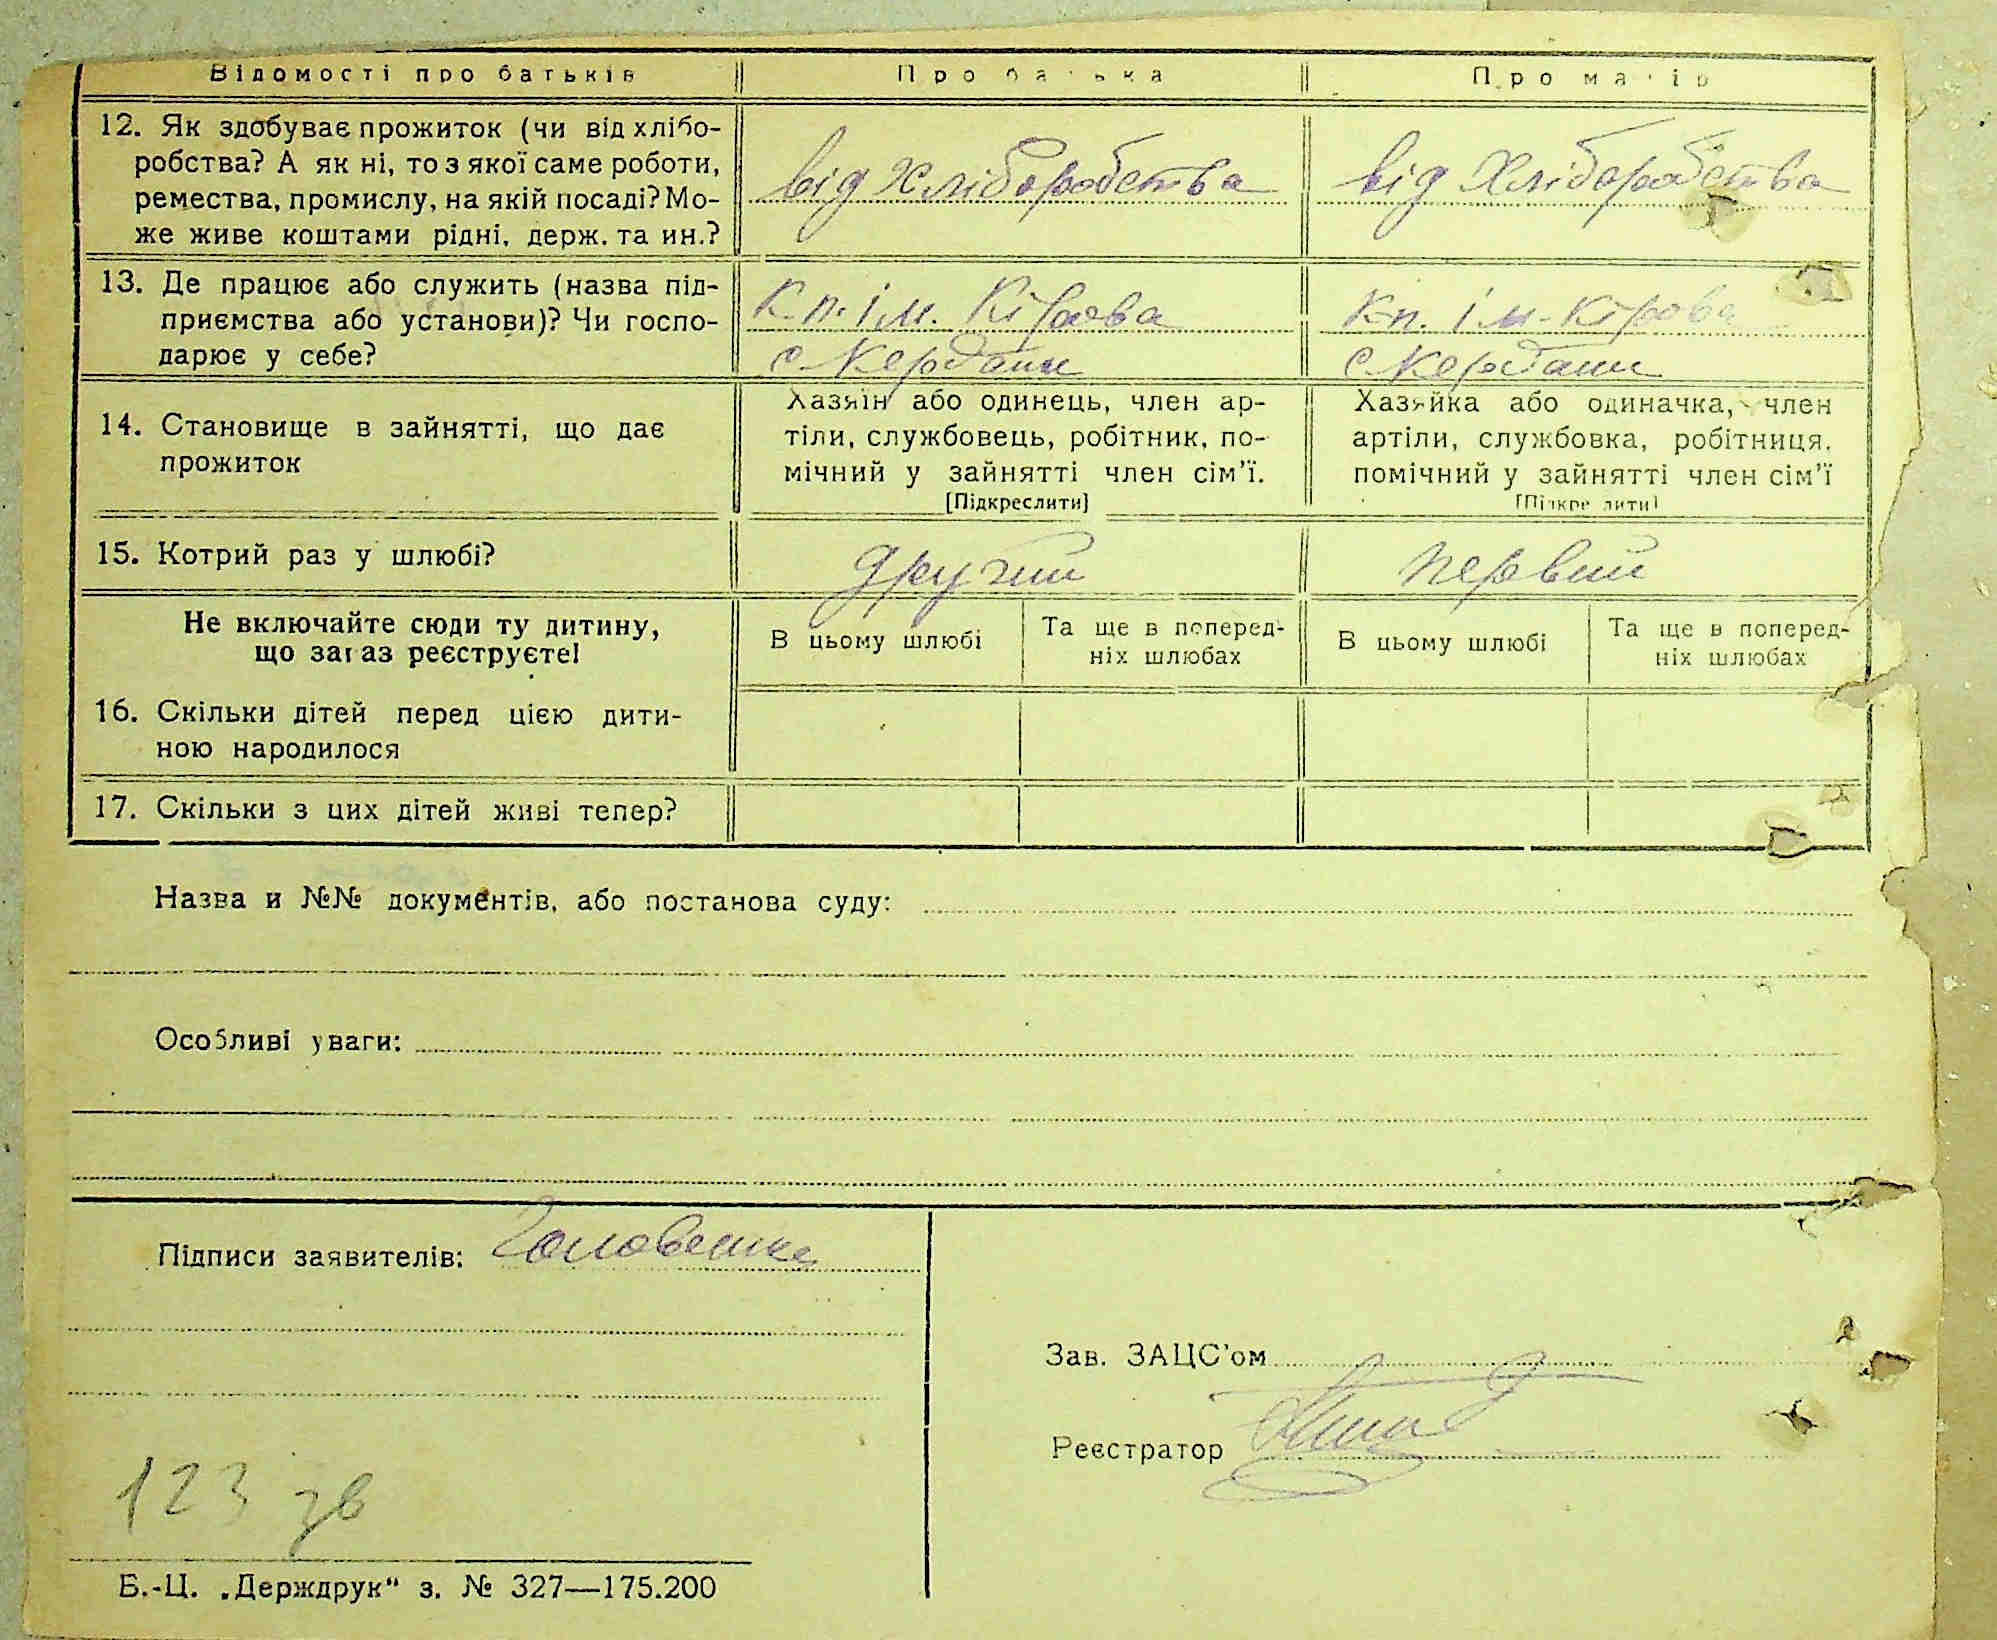 Відомості про батьків Про батька Про матір
12. Як здобуває прожиток (чи від хлібо-
робства? А як ні, то з якої саме роботи,
ремества, промислу, на якій посаді? Мо-
же живе коштами рідні, держ. та ин.?
від хліборобства від хліборобства
13. Де працює або служить (назва під-
приємства або установи)? Чи госпо-
дарює у себе?
К-п. ім. Кірова К-п. ім. Кірова
с Кердани с Кердани
14. Становище в зайнятті, що дає
прожиток
Хазяїн або одинець, член ар-
тіли, службовець, робітник, по-
мічний у зайнятті член сім'ї.
[Підкреслити]
Хазяйка або одиначка, член
артіли, службовка, робітниця.
помічний у зайнятті член сім'ї
[Підкреслити]
15. Котрий раз у шлюбі? другий первий
Не включайте сюди ту дитину,
що зараз реєструєте!
В цьому шлюбі
Та ще в поперед-
ніх шлюбах
В цьому шлюбі
Та ще в поперед-
ніх шлюбах
16. Скільки дітей перед цією дити-
ною народилося
17. Скільки з цих дітей живі тепер?
Назва и №№ документів, або постанова суду:
Особливі уваги:
Підписи заявителів:
Зав. ЗАЦС'ом
Реєстратор
123 зв
Б.-Ц. „Держдрук" з. № 327—175.200